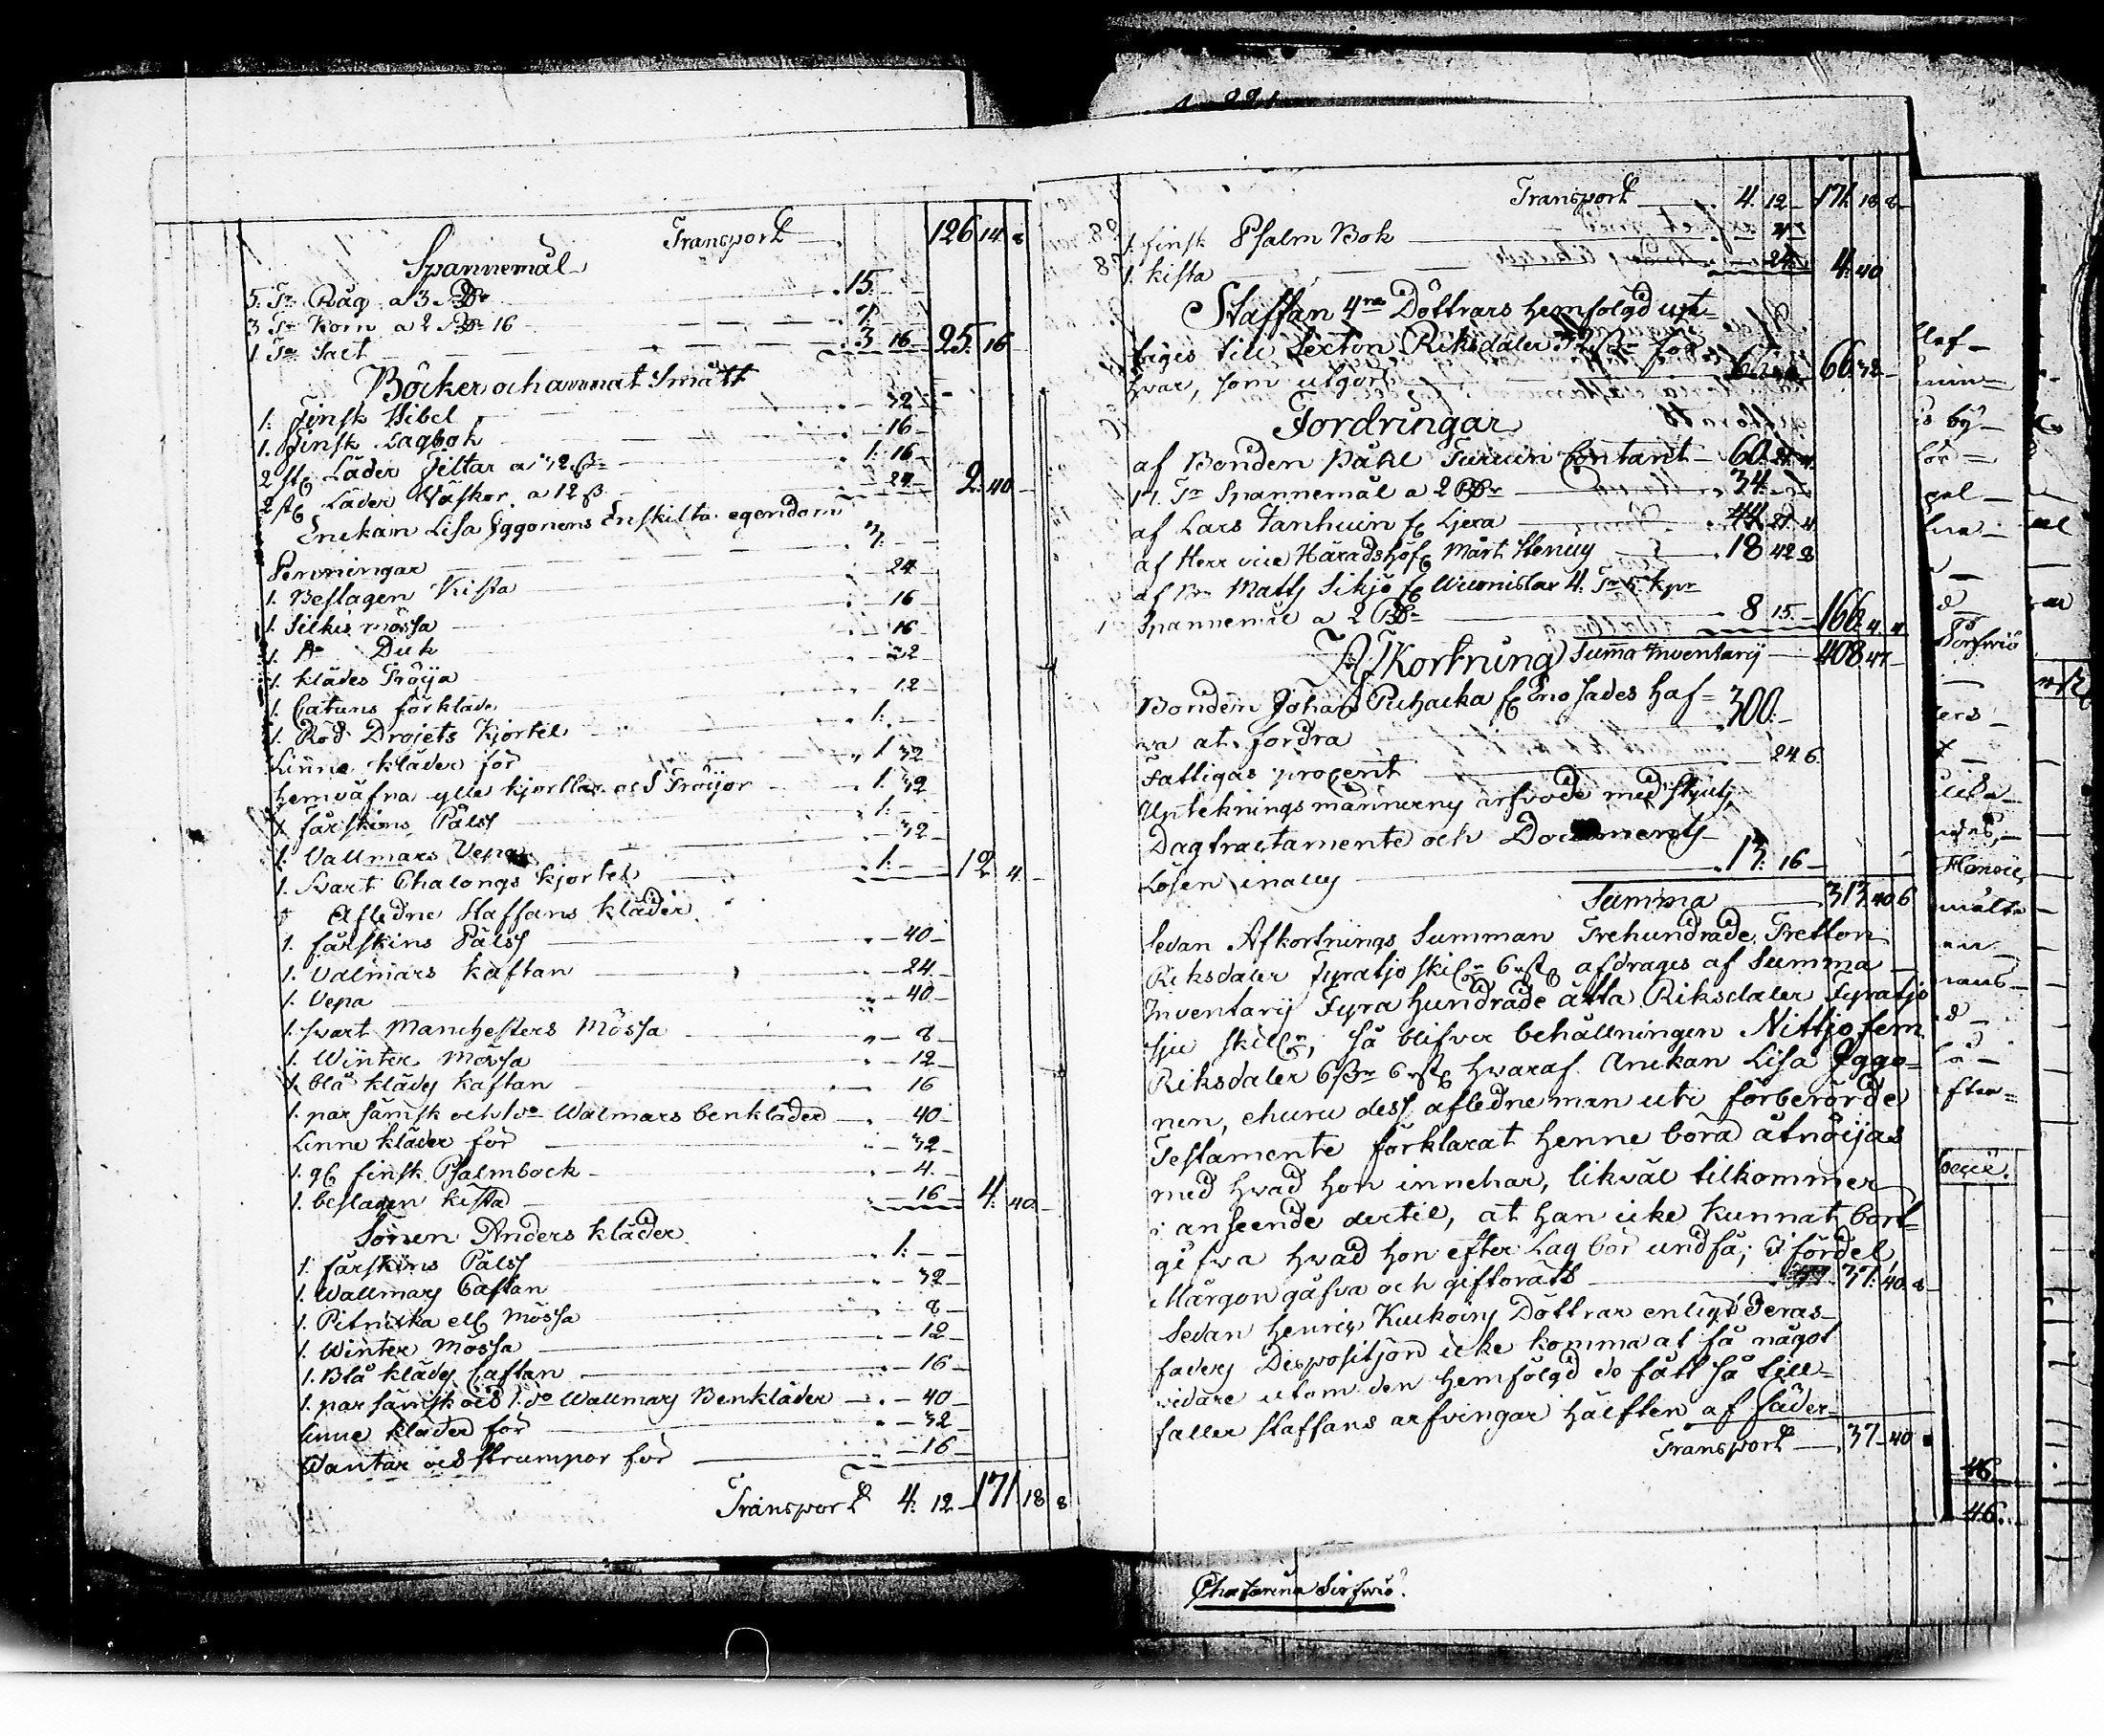 Transport 126 14 8
Spannemål
5. Tr Råg a 3 Rdr 15.
3 Tr Korn a 2 Rdr 16 7.
1 Tr Salt 3 16 25. 16
Böcker och annat Smått
1. Finsk Bibel 32
1. Finsk Lagbok 16
2 st Läder Filtar a 32 ß 1. 16
2 st Läder Väskor a 12 ß 24 2. 40
Enckan Lisa Iggonens Enskilta egendom
Penningar 3.
1. Beslagen Kista 24
1. Silkes mössa 16
1. do Duk 16
1. klädes Tröija 32
1. Catuns förkläde 12
1. Röd Drojets Kjortel 1. –
Linne kläder för 1 32
hemväfna ylle kjortlar och Tröijor 1 32
1 fårskins Pälss 1. –
1. Vallmars Vepa 32
1. Svart Chalongs kjortel 1. – 12 4.
Afledne Staffans kläder
1. fårskins Pälss 40
1. Valmars kaftan 24
1. Vepa 40
1. svart Manchesters Mössa 8
1. Winter Mössa 12
1. blå klädes kaftan 16
1. par sämsk och 1 do Walmars benkläder 40
Linne kläder för 32
1. gl finsk Psalmboek 4
1. beslagen kista 16 4. 40
Sonen Anders kläder
1. fårskins Pälss 1. –
1. Wallmars Caftan 32
1. Petniska ell Mössa 8
1. Winter Mössa 12
1. Blå klädes Caftan 16
1. par sämsk och 1. do Wallmars Benkläder 40
Linne kläder för 32
Wantar och strumpor för 16
Transport 4. 12 171 18 8
Transport 4. 12 171 18 8
1. finsk Psalm Bok 4
1. kista 24 4. 40
Staffan 4ra Döttrars hemfölgd upt=
tages till Sexton Riksdaler 32 ß för
hvar, som utgör 66 32 66. 32
Fordringar
af Bonden Påhl Turuin Contant 60. 24 4
17. Tr Spannemål a 2 Rdr 34.
af Lars Vanhuin fr Ljera 44 24 4
af Herr vice Häradshöf Mårt Stenius 18 42 8
af Bn Matts Sikjö fr 4. Tr 5 kpr
Spannemål a 2 Rdr 8 15 166. 4. 4
Afkortning Summa Inventarij 408 47
Bonden Johan Puhacka fr Eno sades haf=
va at fordra 300.
Fattigas procent 24 6
Upteknings männernes arfvode med Skjuts,
Dagtractamente och Documents
Lösen inalles 13. 16
Summa 313. 40 6
Sedan Afkortnings Summan Trehundrade Tretton
Riksdaler Fyratjo skiln 6 rst afdrages af Summa
Inventarij Fyra hundrade åtta Riksdaler Fyratjo
sju skiln, så blifver behållningen Nittjo fem
Riksdaler 6 ßr 6 rst hvaraf Enckan Lisa Iggo=
nen, ehuru dess afledne man uti förberörde
Testamente förklarat henne böra åtnöijas
med hvad hon innehar, likväl tilkommer
i anseende dertil, at han icke kunnat bort=
gifva hvad hon efter Lag bör undfå; I fördel,
Morgongåfva och giftorätt 37. 40 8
Sedan Henrix Kuckoins Döttrar enligt Deras
faders Disposition icke komma at få något
vidare utom den hemfölgd de fått så till=
faller Staffans arfvingar hälften af fäder=
Transport 37 40
Chatarina Sirfwiö.
46
46.